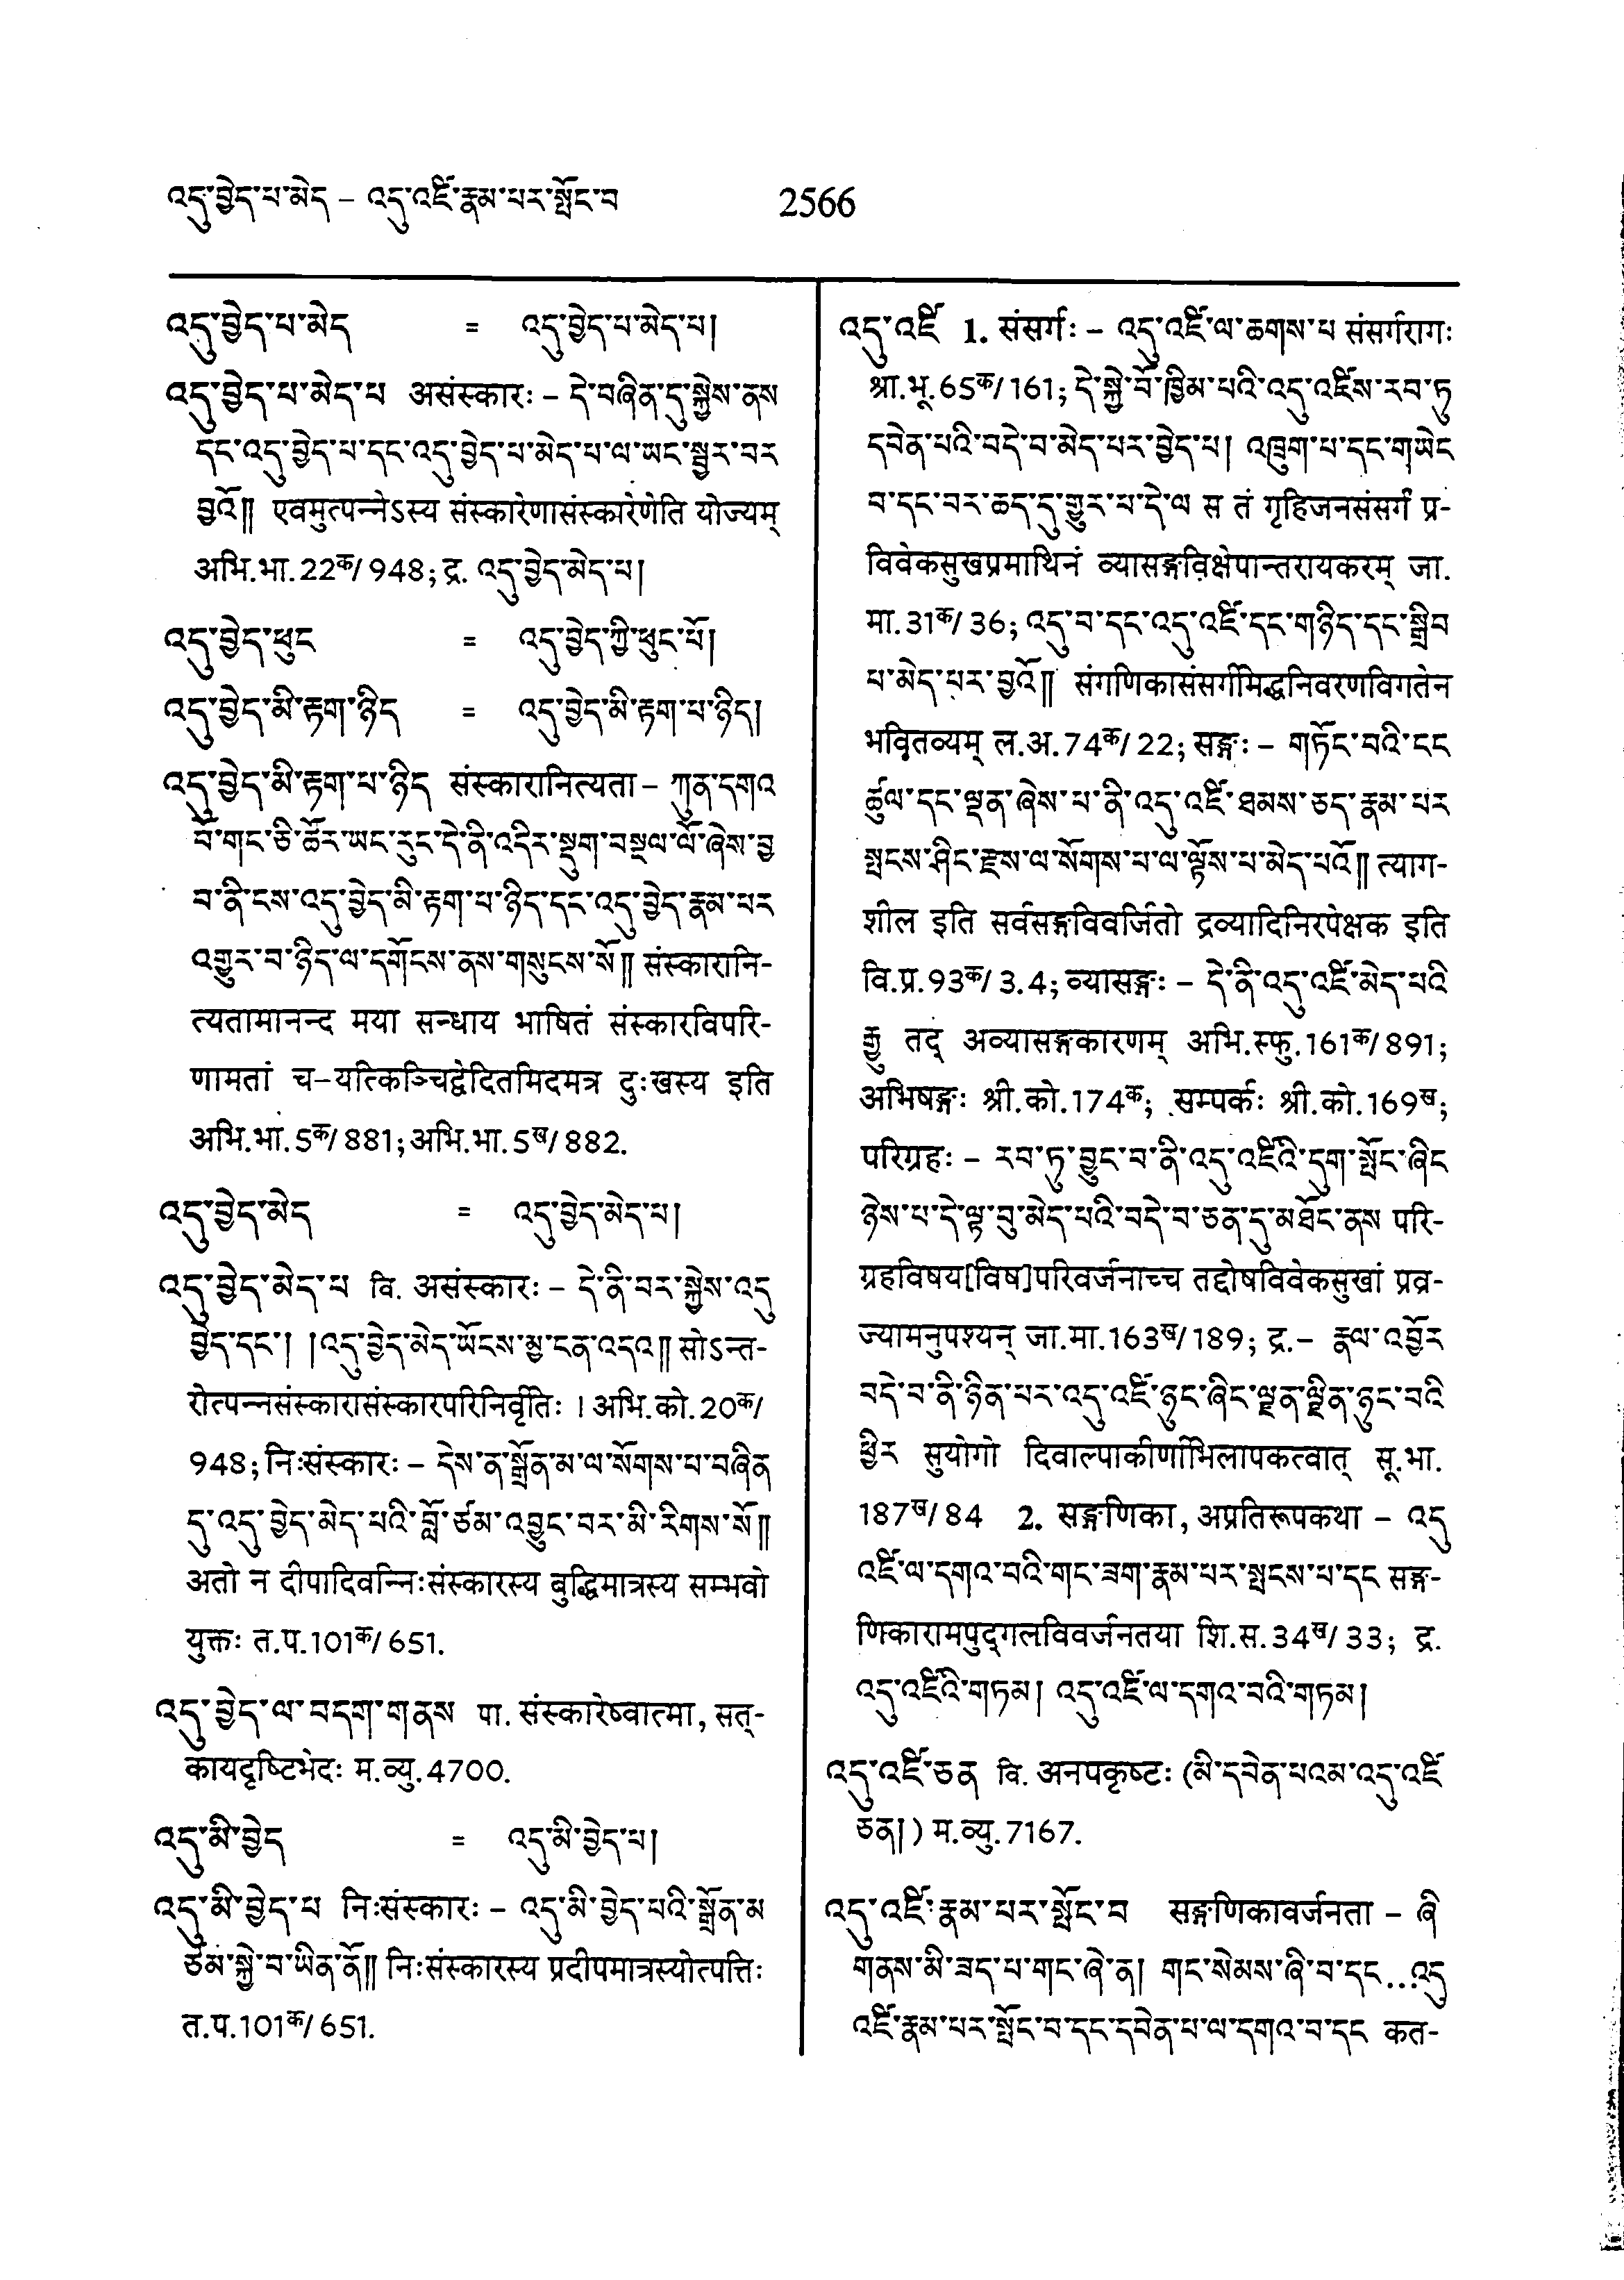 འདུ་བྱེད་པ་མེད – འདུ་འཛི་རྣམ་པར་སྤོང་བ 2566
འདུ་བྱེད་པ་མེད = འདུ་བྱེད་པ་མེད་པ།
འདུ་བྱེད་པ་མེད་པ असंस्कारः – དེ་བཞིན་དུ་སྐྱེས་ནས
དང་འདུ་བྱེད་པ་དང་འདུ་བྱེད་པ་མེད་པ་ལ་ཡང་སྦྱར་བར
བྱའོ།། एवमुत्पन्नेऽस्य संस्कारेणासंस्कारेणेति योज्यम्
अभि.भा.22क/948; द्र. འདུ་བྱེད་མེད་པ།
འདུ་བྱེད་ཕུང = འདུ་བྱེད་ཀྱི་ཕུང་པོ།
འདུ་བྱེད་མི་རྟག་ཉིད = འདུ་བྱེད་མི་རྟག་པ་ཉིད།
འདུ་བྱེད་མི་རྟག་པ་ཉིད संस्कारानित्यता – ཀུན་དགའ
བོ་གང་ཅི་ཚོར་ཡང་རུང་དེ་ནི་འདིར་སྡུག་བསྔལ་ལོ་ཞེས་བྱ
བ་ནི་ངས་འདུ་བྱེད་མི་རྟག་པ་ཉིད་དང་འདུ་བྱེད་རྣམ་པར
འགྱུར་བ་ཉིད་ལ་དགོངས་ནས་གསུངས་སོ།། संस्कारानि-
त्यतामानन्द मया सन्धाय भाषितं संस्कारविपरि-
णामतां च–यत्किञ्चिद्वेदितमिदमत्र दुःखस्य इति
अभि.भा.5क/881; अभि.भा.5ख/882.
འདུ་བྱེད་མེད = འདུ་བྱེད་མེད་པ།
འདུ་བྱེད་མེད་པ वि. असंस्कारः – དེ་ནི་བར་སྐྱེས་འདུ
བྱེད་དང་། །འདུ་བྱེད་མེད་ཡོངས་མྱ་ངན་འདའ།། सोऽन्त-
रोत्पन्नसंस्कारासंस्कारपरिनिर्वृतिः । अभि.को.20क/
948; निःसंस्कारः – དེས་ན་སྒྲོན་མ་ལ་སོགས་པ་བཞིན
དུ་འདུ་བྱེད་མེད་པའི་བློ་ཙམ་འབྱུང་བར་མི་རིགས་སོ།།
अतो न दीपादिवन्निःसंस्कारस्य बुद्धिमात्रस्य सम्भवो
युक्तः त.प.101क/651.
འདུ་བྱེད་ལ་བདག་གནས पा. संस्कारेष्वात्मा, सत्-
कायदृष्टिभेदः म.व्यु.4700.
འདུ་མི་བྱེད = འདུ་མི་བྱེད་པ།
འདུ་མི་བྱེད་པ निःसंस्कारः – འདུ་མི་བྱེད་པའི་སྒྲོན་མ
ཙམ་སྐྱེ་བ་ཡིན་ནོ།། निःसंस्कारस्य प्रदीपमात्रस्योत्पत्तिः
त.प.101क/651.
འདུ་འཛི 1. संसर्गः – འདུ་འཛི་ལ་ཆགས་པ संसर्गरागः
श्रा.भू.65क/161; དེ་སྐྱེ་བོ་ཁྱིམ་པའི་འདུ་འཛིས་རབ་ཏུ
དབེན་པའི་བདེ་བ་མེད་པར་བྱེད་པ། འཁྲུག་པ་དང་གཡེང
བ་དང་བར་ཆད་དུ་གྱུར་པ་དེ་ལ स तं गृहिजनसंसर्गं प्र-
विवेकसुखप्रमाथिनं व्यासङ्गविक्षेपान्तरायकरम् जा.
मा.31क/36; འདུ་བ་དང་འདུ་འཛི་དང་གཉིད་དང་སྒྲིབ
པ་མེད་པར་བྱའོ།། संगणिकासंसर्गमिद्धनिवरणविगतेन
भवितव्यम् ल.अ.74क/22; सङ्गः – གཏོང་བའི་ངང
ཚུལ་དང་ལྡན་ཞེས་པ་ནི་འདུ་འཛི་ཐམས་ཅད་རྣམ་པར
སྤངས་ཤིང་རྫས་ལ་སོགས་པ་ལ་ལྟོས་པ་མེད་པའོ།། त्याग-
शील इति सर्वसङ्गविवर्जितो द्रव्यादिनिरपेक्षक इति
वि.प्र.93क/3.4; व्यासङ्गः – དེ་ནི་འདུ་འཛི་མེད་པའི
རྒྱུ तद् अव्यासङ्गकारणम् अभि.स्फु.161क/891;
अभिषङ्गः श्री.को.174क; सम्पर्कः श्री.को.169ख;
परिग्रहः – རབ་ཏུ་བྱུང་བ་ནི་འདུ་འཛིའི་དུག་སྤོང་ཞིང
ཉེས་པ་དེ་ལྟ་བུ་མེད་པའི་བདེ་བ་ཅན་དུ་མཐོང་ནས परि-
ग्रहविषय[विष]परिवर्जनाच्च तद्दोषविवेकसुखां प्रव्र-
ज्यामनुपश्यन् जा.मा.163ख/189; द्र.– རྣལ་འབྱོར
བདེ་བ་ནི་ཉིན་པར་འདུ་འཛི་ཉུང་ཞིང་ལྷན་ལྷིན་ཉུང་བའི
ཕྱིར सुयोगो दिवाल्पाकीर्णाभिलापकत्वात् सू.भा.
187ख/84 2. सङ्गणिका, अप्रतिरूपकथा – འདུ
འཛི་ལ་དགའ་བའི་གང་ཟག་རྣམ་པར་སྤངས་པ་དང सङ्ग-
णिकारामपुद्गलविवर्जनतया शि.स.34ख/33; द्र.
འདུ་འཛིའི་གཏམ། འདུ་འཛི་ལ་དགའ་བའི་གཏམ།
འདུ་འཛི་ཅན वि. अनपकृष्टः (མི་དབེན་པའམ་འདུ་འཛི
ཅན།) म.व्यु.7167.
འདུ་འཛི་རྣམ་པར་སྤོང་བ सङ्गणिकावर्जनता – ཞི
གནས་མི་ཟད་པ་གང་ཞེ་ན། གང་སེམས་ཞི་བ་དང...འདུ
འཛི་རྣམ་པར་སྤོང་བ་དང་དབེན་པ་ལ་དགའ་བ་དང कत-